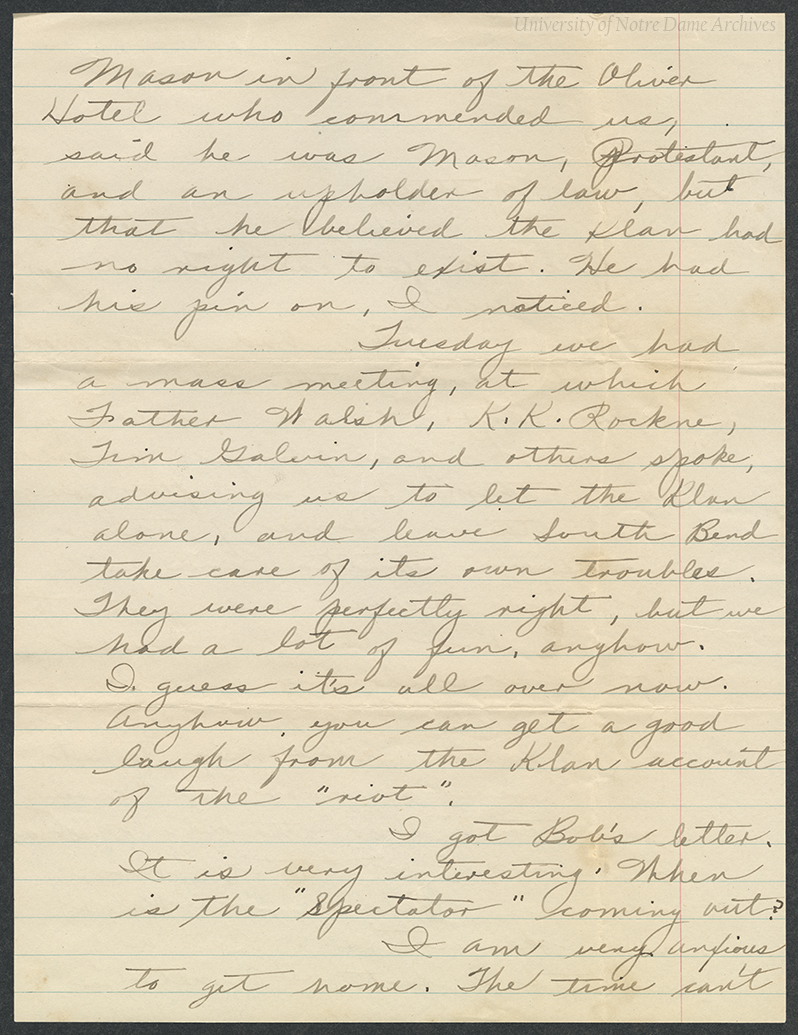 University of Notre Dame Archives
Mason in front of the Oliver
Hotel who commended us,
said he was Mason, Protestant,
and an upholder of law, but
that he believed the Klan had
no right to exist. He had
his pin on, I noticed.
Tuesday we had
a mass meeting, at which
Father Walsh, K.K. Rockne,
Tim Galvin, and others spoke,
advising us to let the Klan
alone, and leave South Bend
take care of its own troubles.
They were perfectly right, but we
had a lot of fun, anyhow.
I guess it's all over now.
Anyhow, you can get a good
laugh from the Klan account
of the "riot".
I got Bob's letter.
It is very interesting. When
is the "Spectator" coming out?
I am very anxious
to get home. The time can't